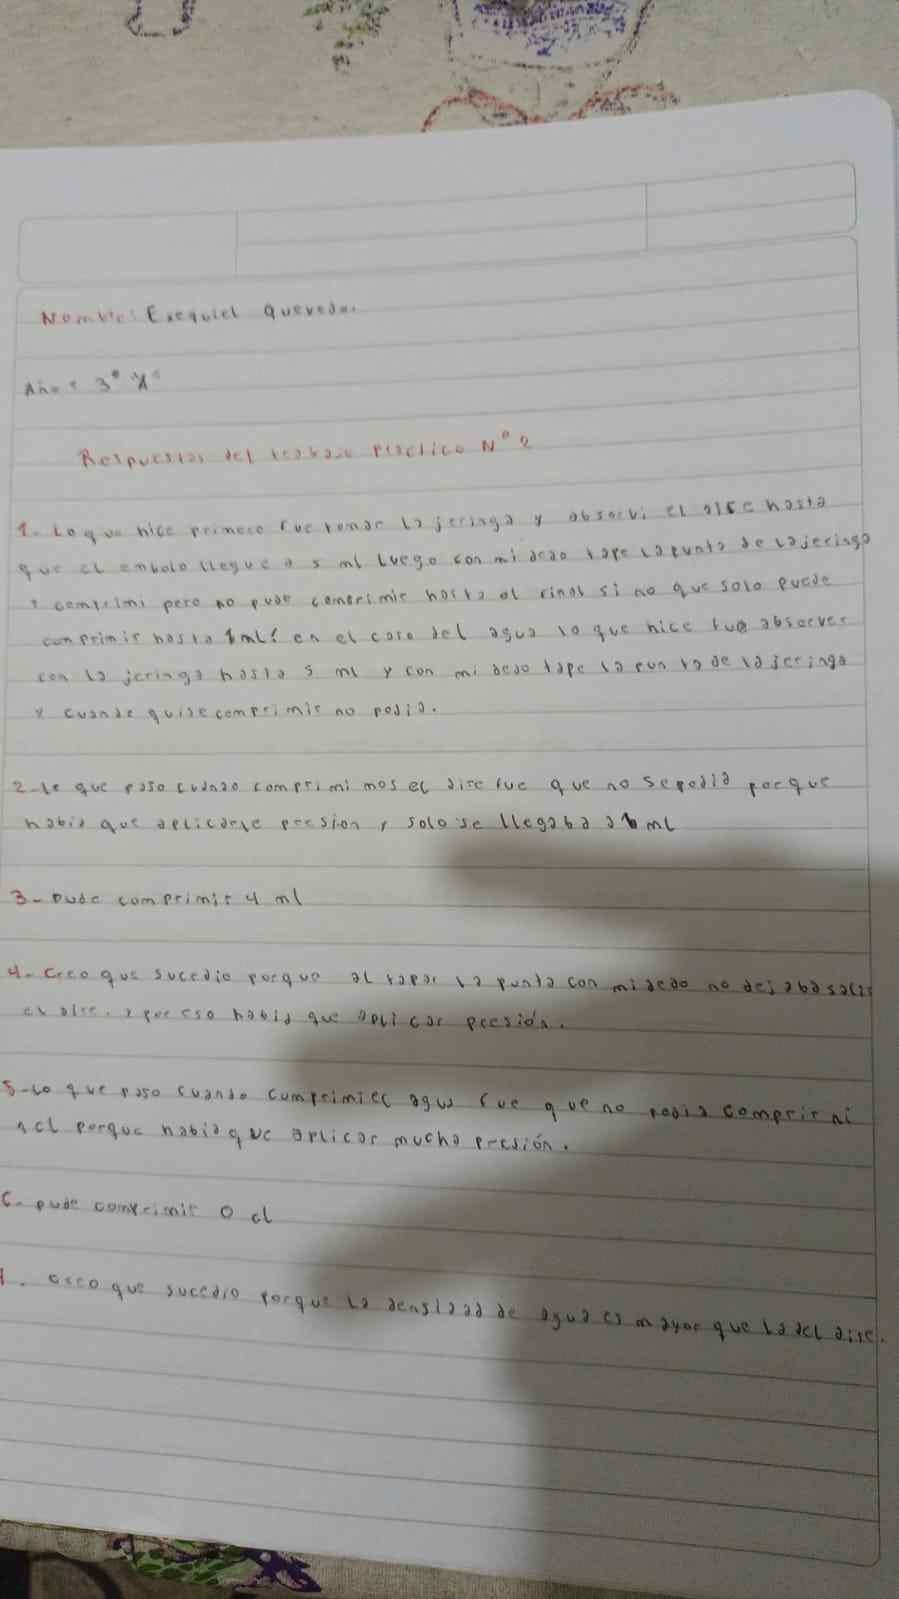 Nombre: Exequiel Quevedo.
Año: 3° "A"
Respuestas del trabajo practico N° 2
1- Lo que hice primero fue tomar la jeringa y absorvi el aire hasta
que el embolo llegue a 5 ml luego con mi dedo tape la punta de la jeringa
y comprimi pero no pude comprimir hasta al final si no que solo puede
comprimir hasta 1ml: en el caso del agua lo que hice fue absorver
con la jeringa hasta 5 ml y con mi dedo tape la punta de la jeringa
y cuando quise comprimir no podia.
2-lo que paso cuando comprimimos el aire fue que no se podia porque
habia que aplicarle presion y solo se llegaba a 1 ml
3- pude comprimir 4 ml
4- Creo que sucedio porque al tapar la punta con mi dedo no dejabasalir
el aire. y por eso habia que aplicar presión.
5-lo que paso cuando comprimi el agua fue que no podia comprir ni
1 cl porque habia que aplicar mucha presión.
6- pude comprimir 0 cl
7. creo que sucedio porque la densidad de agua es mayor que la del aire.